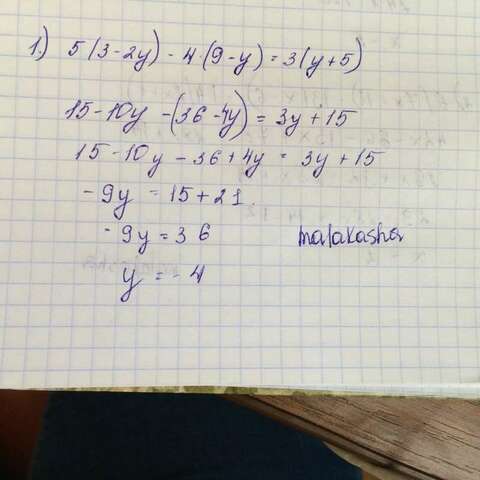 1.) 5(3-2y) - 4·(9-y) = 3(y+5)
15-10y -(36-4y) = 3y+15
15-10y -36+4y = 3y+15
-9y = 15+21.
-9y = 36
malakasha
y = -4